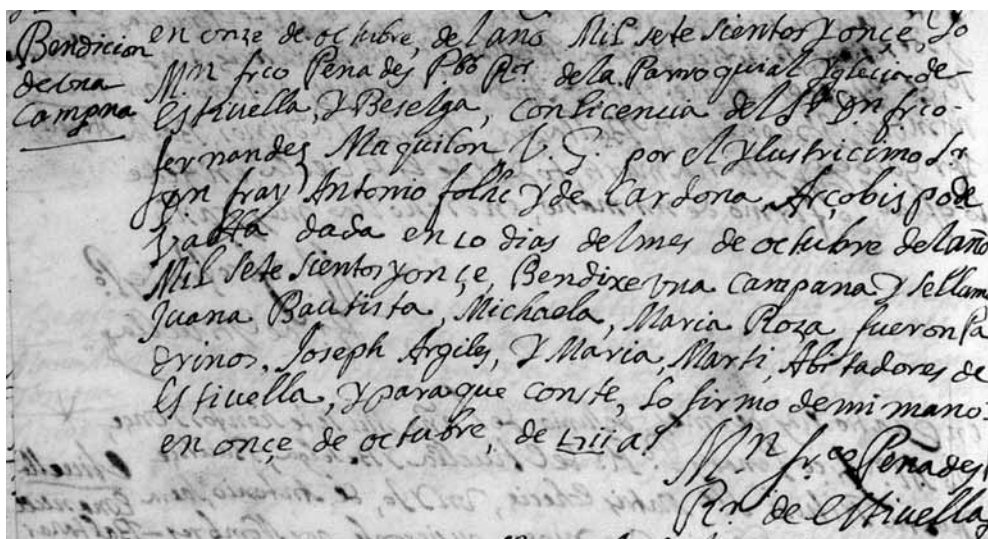 Bendicion
de una
Campna
en onze de octubre, del ano Mil sete sientos y onçe, Yo
Mn frco Penades Pbro Rr. de la Parroquial Yglecia de
estivella, y Beselga, con licencia del Sr Dn frco
fernandez Maquilon V. G. por el ylustricimo Sr
Dn fray Antonio folhc y de Cardona, Arçobispo de
Vª dada en 10 dias del mes de octubre del año
Mil sete sientos y onçe, Bendixe una campana y se llama
Juana Bautista, Michaela, Maria Roza fueron Pa
drinos, Joseph Argiles, y Maria, Marti, Abitadores de
estivella, y para que conste, lo firmo de mi mano
en onçe de octubre, de
Mn frco Penades
Rr. de estivella